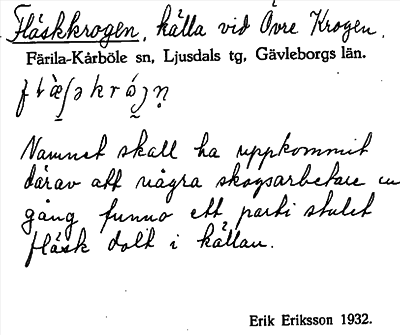 Fläskkrogen, källa vid Övre Krogen.
Färila-Kårböle sn, Ljusdals tg, Gävleborgs län.
Namnet skall ha uppkommit
därav att några skogsarbetare en
gång funno ett parti stulet
fläsk dolt i källan.
Erik Eriksson 1932.